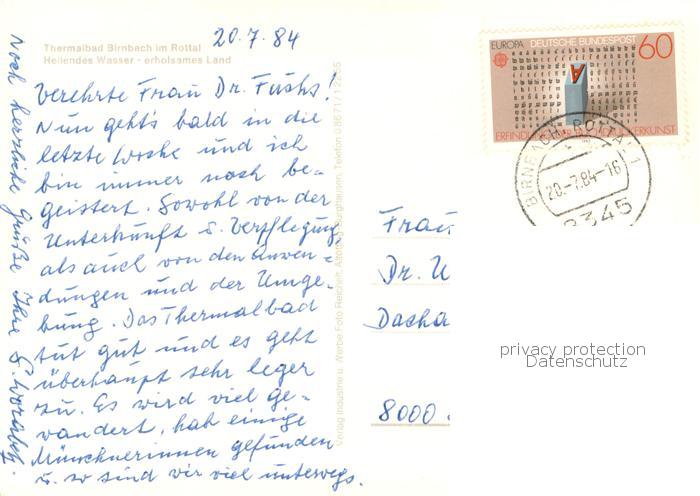 Thermalbad Birnbach im Rottal
Heilendes Wasser - erholsames Land
20.7.84
Verehrte Frau Dr. Fuchs!
Nun geht's bald in die
letzte Woche und ich
bin immer noch be-
geistert. Sowohl von der
Unterkunft u. Verpflegung,
als auch von den Anwen-
dungen und der Umge-
bung. Das Thermalbad
tut gut und es geht
überhaupt sehr leger
zu. Es wird viel ge-
wandert, hab einige
Münchnerinnen gefunden
u. so sind wir viel unterwegs.
Noch herzliche Grüße Ihre
Verlag Industrie u. Werbe Foto Reichelt,
EUROPA DEUTSCHE BUNDESPOST 60
ERFINDUNG DER BUCHDRUCKERKUNST
BIRNBACH, ROTTAL 1
20.-7.84-16
8345
Frau
Dr. U
Dacha
8000
privacy protection
Datenschutz